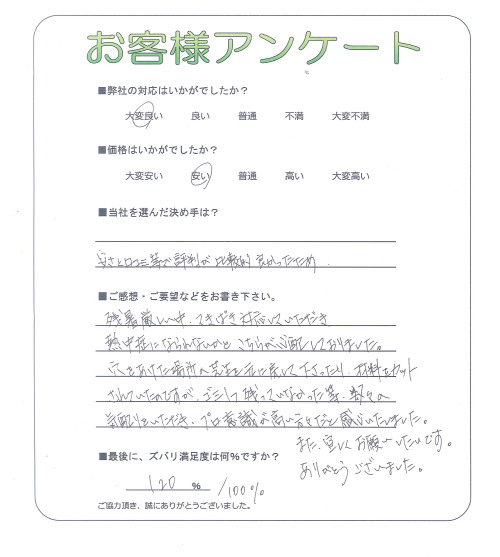 お客様アンケート
■弊社の対応はいかがでしたか？
大変良い 良い 普通 不満 大変不満
■価格はいかがでしたか？
大変安い 安い 普通 高い 大変高い
■当社を選んだ決め手は？
安さと口コミ等の評判が比較的良かったため
■ご感想・ご要望などをお書き下さい。
残暑厳しい中、てきぱき対応していただき
熱中症にならないかとこちらが心配しておりました。
穴をあけた場所の芝生を元に戻して下さったり、材料をカット
されていたのですが、ゴミ1つ残っていなかった等、数々の
気配りをいただき、プロ意識が高い方々だと感じいたしました。
また、宜しくお願いいたいです。
ありがとうございました。
■最後に、ズバリ満足度は何％ですか？
120 % /100%
ご協力頂き、誠にありがとうございました。